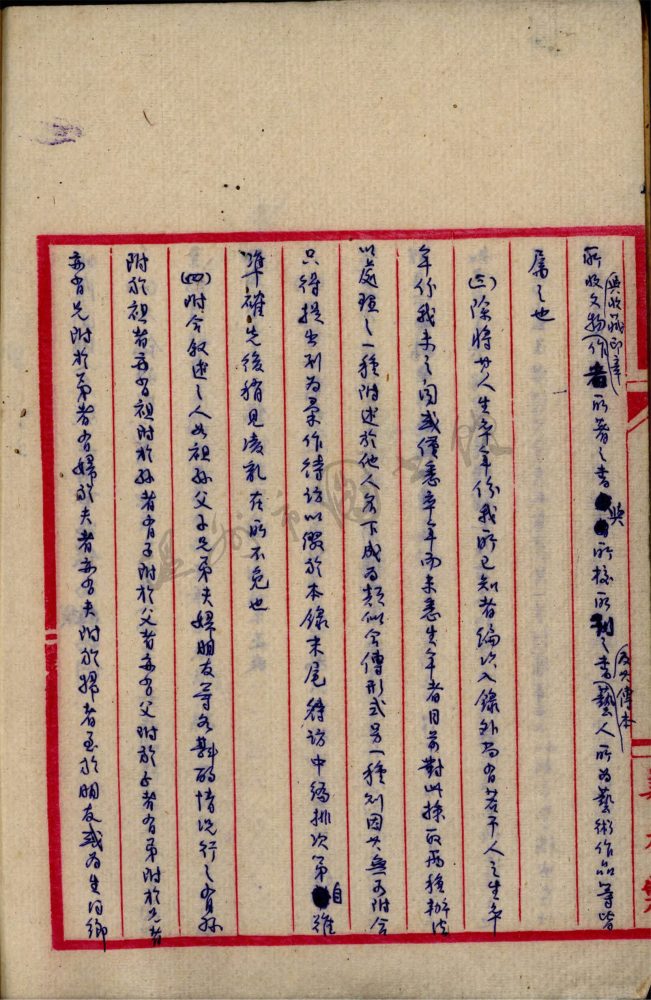 所收文物與收藏印章作者所著之書與所校所刻之書及其傳本藝人所為藝術作品等皆
屬之也
(三)除將其人生卒年份我所已知者編次入錄外尚有若干人之生卒
年份我未之聞或僅悉卒年而未悉生年者目前對此採取兩種辦法
以處理之一種附述於他人名下成為類似合傳形式另一種則因其無可附合
只得提出列為另作待訪以綴於本錄末尾待訪中編排次第自難
準確先後稍見凌亂在所不免也
(四)附合敘述之人如祖孫父子兄弟夫婦朋友等各斟酌情況行之有孫
附於祖者亦有祖附於孫者有子附於父者亦有父附於子者有弟附於兄者
亦有兄附於弟者有婦於夫者亦有夫附於婦者至於朋友或為生同鄉